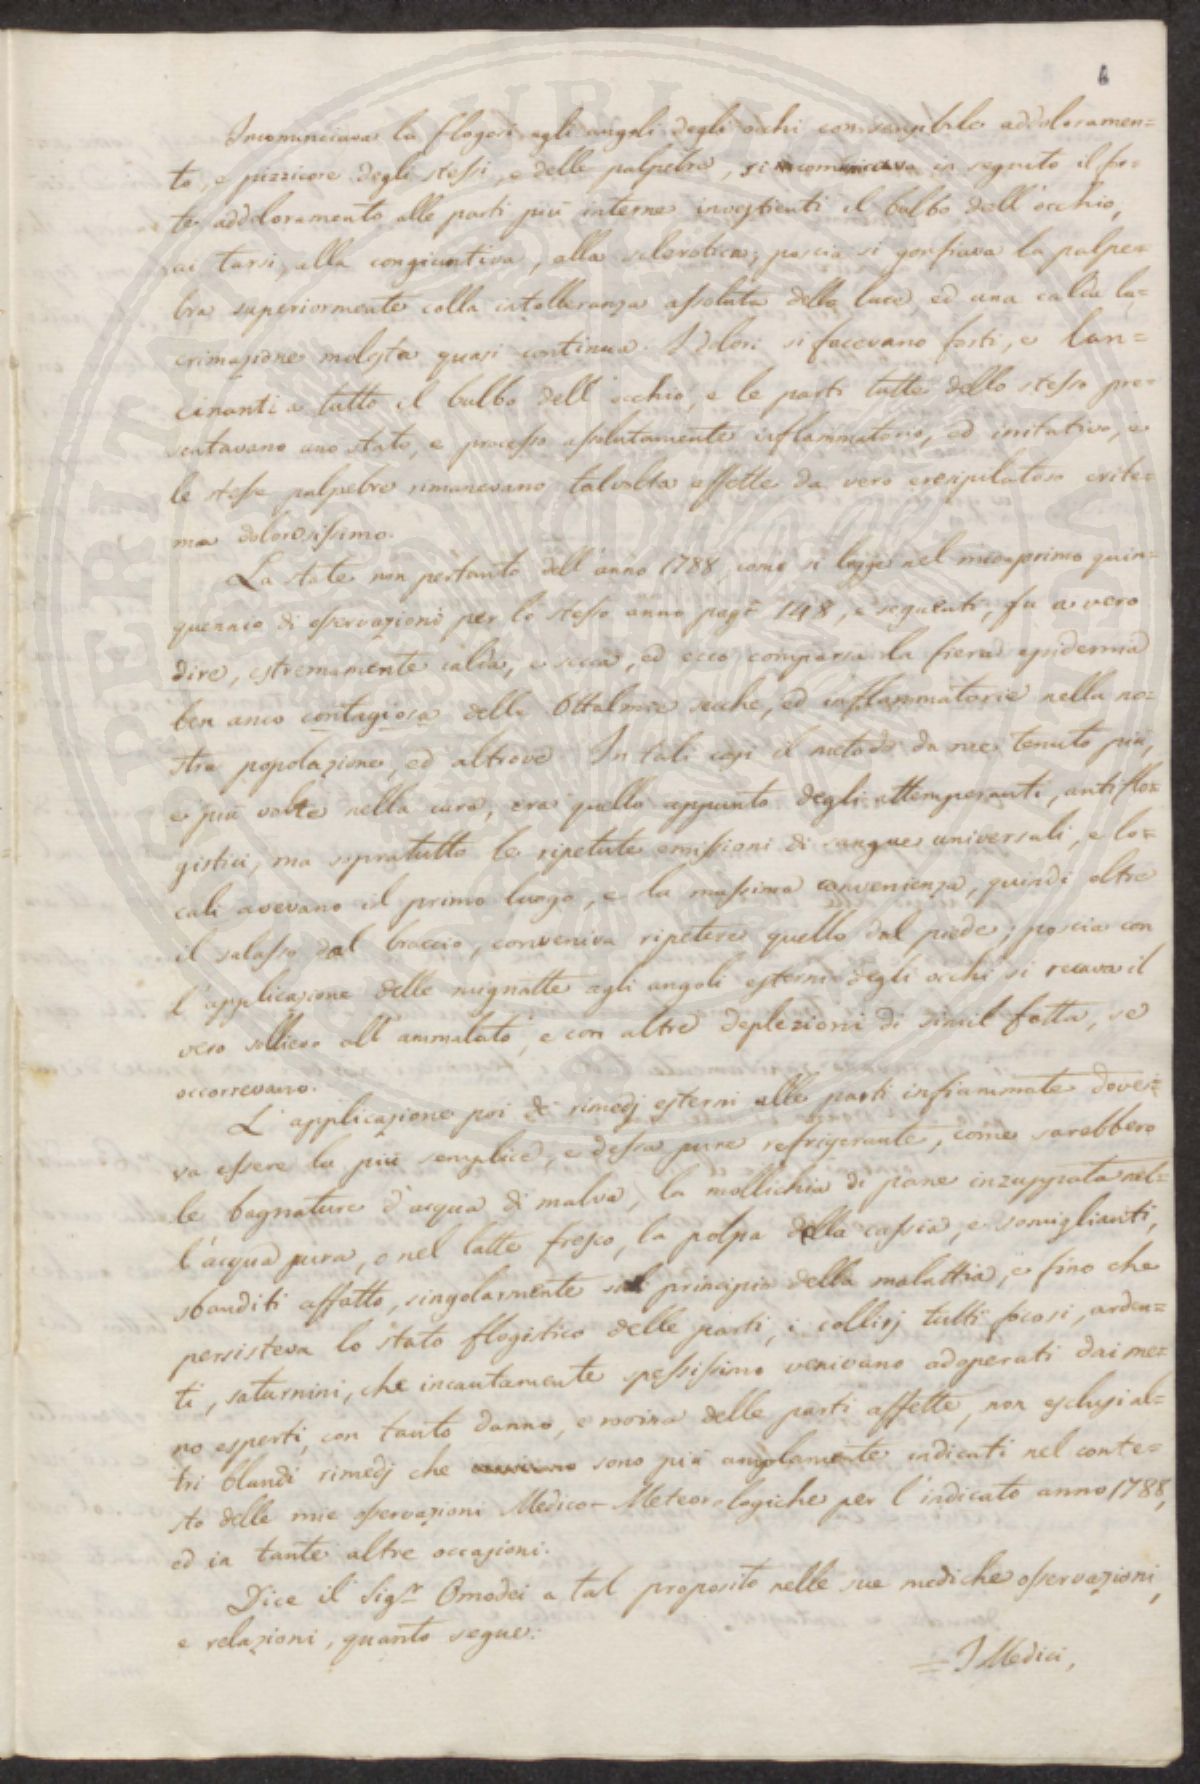 6
Incominciava la flogosi agli angoli degli occhi con sensibile addoloramen=
to, e pizzicore degli stessi, e delle palpebre, si comunicava in seguito il for=
te addoloramento alle parti più interne investienti il bulbo dell'occhio,
ai tarsi, alla congiuntiva, alla sclerotica; poscia si gonfiava la palpe=
bra superiormente colla intolleranza assoluta della luce ed una calda la=
crimazione molesta quasi continua. I dolori si facevano forti, e lan=
cinanti a tutto il bulbo dell'occhio, e le parti tutte dello stesso pre=
sentavano uno stato, e processo assolutamente inflammatorio, ed irritativo, e
le stesse palpebre rimanevano talvolta affette da vero eresipelatoso erite=
ma dolorosissimo.
La state non pertanto dell'anno 1788, come si legge nel mio primo quin=
quennio di osservazioni per lo stesso anno pag.e 148, e seguenti, fu a vero
dire, estremamente calda, e secca, ed ecco comparsa la fiera epidemia
ben anco contagiosa delle Ottalmie secche, ed inflammatorie nella no=
stra popolazione, ed altrove. In tali casi il metodo da me tenuto più,
e più volte nella cura, era quello appunto degli attemperanti, antiflo=
gistici, ma sopratutto le ripetute emissioni di sangue universali, e lo=
cali avevano il primo luogo, e la massima convenienza, quindi oltre
il salasso dal braccio, conveniva ripetere quello dal piede; poscia con
l'applicazione delle mignatte agli angoli esterni degli occhi si recava il
vero sollievo all'ammalato, e con altre deplezioni di simil fatta, se
occorrevano.
L'applicazione poi de' rimedj esterni alle parti infiammate dove=
va essere la più semplice, e dessa pure refrigerante, come sarebbero
le bagnature d'acqua di malva, la mollichia di pane inzuppata nel=
l'acqua pura, o nel latte fresco, la polpa della cassia, e somiglianti,
sbanditi affatto, singolarmente sul principio della malattia, e fino che
persisteva lo stato flogistico delle parti, i collirj tutti focosi, arden=
ti, saturnini, che incautamente spessissimo venivano adoperati dai me=
no esperti, con tanto danno, e rovina delle parti affette, non esclusi al=
tri blandi rimedj che sono più amplamente indicati nel conte=
sto delle mie osservazioni Medico-Meteorologiche per l'indicato anno 1788,
ed in tante altre occasioni.
Dice il Sig.r Omodei a tal proposito nelle sue mediche osservazioni,
e relazioni, quanto segue:
= I Medici,